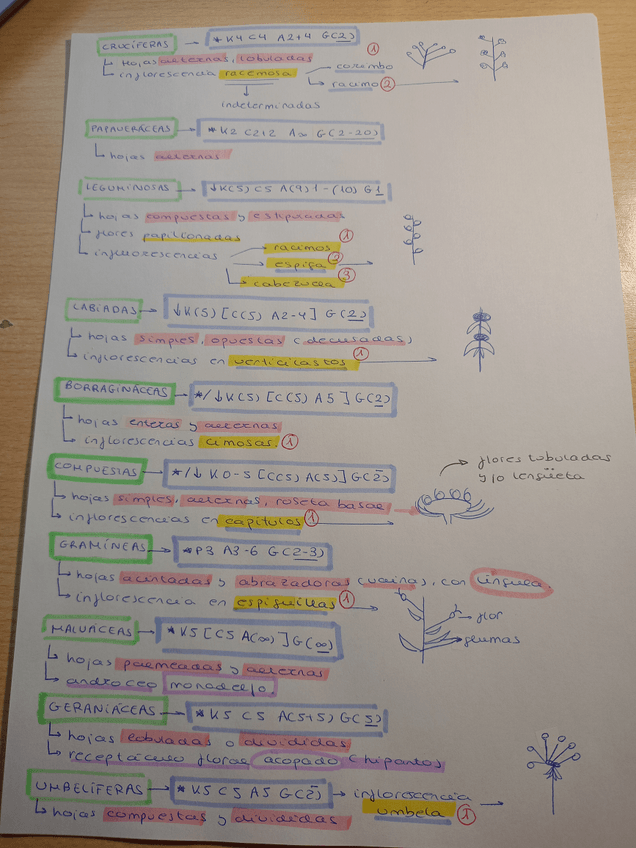 CRUCÍFERAS → * K4 C4 A2+4 G(2)
hojas alternas, lobuladas
inflorescencia racemosa corimbo ①
racimo ②
indeterminadas
PAPAVERÁCEAS → * K2 C2+2 A∞ G(2-20)
hojas alternas
LEGUMINOSAS → ↓K(5) C5 A(9)1-(10) G1
hojas compuestas y estipuladas
flores papilionadas
inflorescencias racimos ①
espiga ②
cabezuela ③
LABIADAS → ↓K(5) [C(5) A2-4] G(2)
hojas simples, opuestas (decusadas)
inflorescencias en verticilastos ①
BORRAGINÁCEAS → */↓K(5) [C(5) A5] G(2)
hojas enteras y alternas
inflorescencias cimosas. ①
COMPUESTAS → */↓ K0-5 [C(5) A(5)] G(2)
flores tubuladas
y/o lengüeta
hojas simples, alternas, roseta basal
inflorescencias en capítulos ①
GRAMÍNEAS → *P3 A3-6 G(2-3)
hojas acintadas y abrazadoras (vainas), con lígula.
inflorescencia en espiguillas ①
flor
glumas
MALVÁCEAS → *K5 [C5 A(∞)] G(∞)
hojas palmeadas y alternas
androceo monadelfo.
GERANIÁCEAS → *K5 C5 A(5+5) G(5)
hojas lobuladas o divididas
receptáculo floral acopado (hipantos
UMBELÍFERAS → *K5 C5 A5 G(2) → inflorescencia
umbela ①
hojas compuestas y divididas